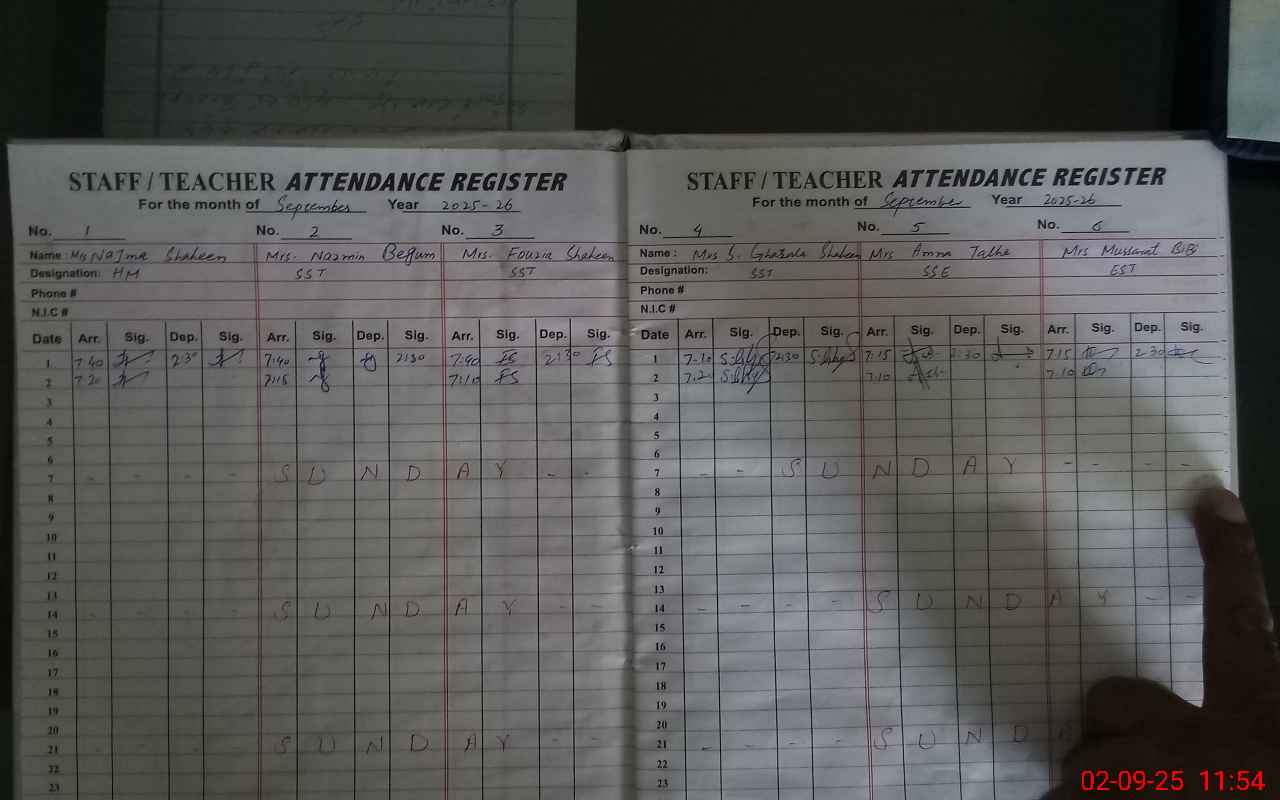 STAFF / TEACHER ATTENDANCE REGISTER
For the month of September Year 2025-26
No. 1 No. 2 No. 3
Name: Mrs Najma Shaheen Mrs. Nazmin Begum Mrs. Fouzia Shaheen
Designation: HM SST SST
Phone #
N.I.C #
Date Arr. Sig. Dep. Sig. Arr. Sig. Dep. Sig. Arr. Sig. Dep. Sig.
1 7:40 2:30 7:40 2:30 7:40 FS 2:30 FS
2 7:20 7:15 7:10 FS
3
4
5
6
7 - - - - S U N D A Y - -
8
9
10
11
12
13
14 - - - - S U N D A Y - -
15
16
17
18
19
20
21 - - - - S U N D A Y - -
22
23
STAFF / TEACHER ATTENDANCE REGISTER
For the month of September Year 2025-26
No. 4 No. 5 No. 6
Name: Mrs S. Ghazala Shaheen Mrs Amna Talha Mrs Mussarat BiBi
Designation: SST SSE EST
Phone #
N.I.C #
Date Arr. Sig. Dep. Sig. Arr. Sig. Dep. Sig. Arr. Sig. Dep. Sig.
1 2:30 7:15 2:30 7:15 2:30
2 7:10 7:10
3
4
5
6
7 - - S U N D A Y - - - -
8
9
10
11
12
13
14 - - - - S U N D A Y - -
15
16
17
18
19
20
21 - - - - S U N D
22
23
02-09-25 11:54